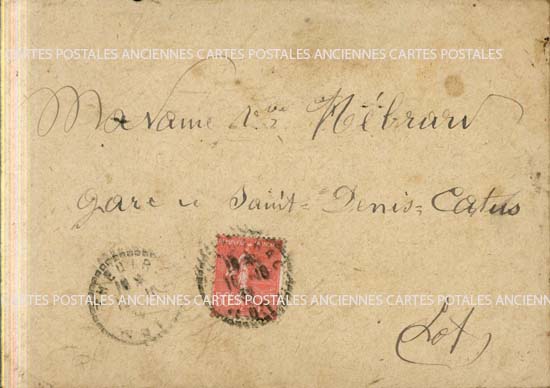 CARTES POSTALES ANCIENNES CARTES POSTALES ANCIENNES CARTES POSTALES
Madame Vve Hébrard
gare de Saint-Denis-Catus
CARTES POSTALES ANCIENNES CARTES POSTALES ANCIENNES CARTES POSTALES
Lot